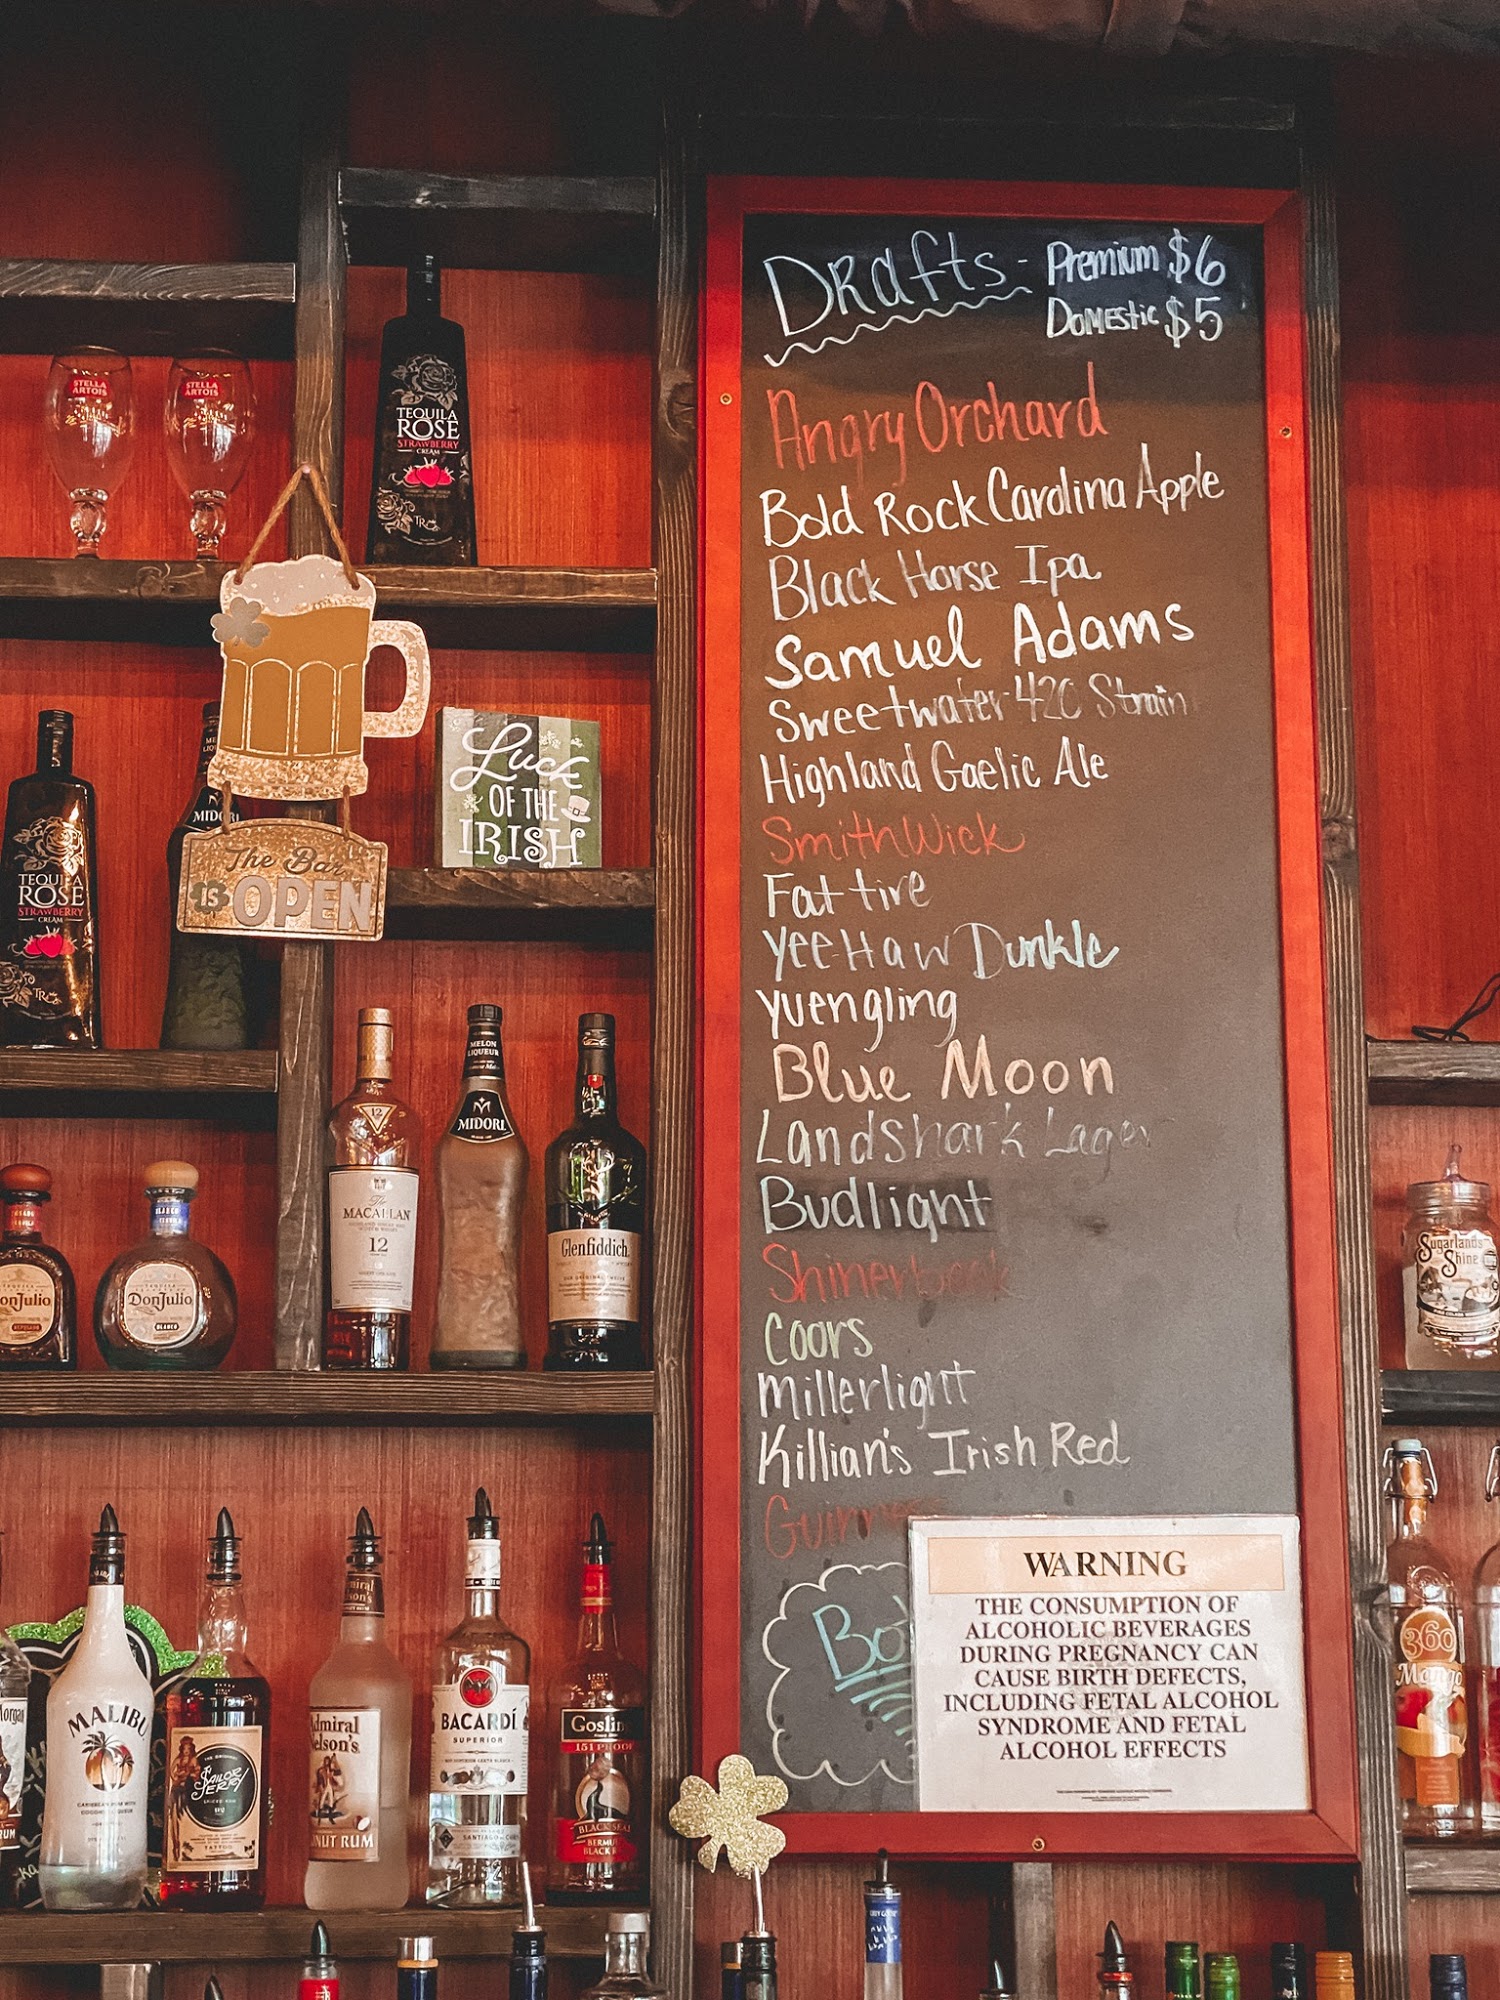 Drafts - Premium $6
Domestic $5
Angry Orchard
Bold Rock Carolina Apple
Black Horse Ipa
Samuel Adams
Sweetwater 420 Strain
Highland Gaelic Ale
SmithWick
Fat tire
Yee-Haw Dunkle
Yuengling
Blue Moon
Landshark Lager
Budlight
Shinerbock
Coors
Millerlight
Killian's Irish Red
Guinness
Bo
WARNING
THE CONSUMPTION OF
ALCOHOLIC BEVERAGES
DURING PREGNANCY CAN
CAUSE BIRTH DEFECTS,
INCLUDING FETAL ALCOHOL
SYNDROME AND FETAL
ALCOHOL EFFECTS
STELLA
ARTOIS
STELLA
ARTOIS
TEQUILA
ROSE
STRAWBERRY
CREAM
TR
Luck
OF THE
IRISH
The Bar
IS OPEN
MIDORI
TEQUILA
ROSE
STRAWBERRY
CREAM
TR
12
The
MACALLAN
12
MELON
LIQUEUR
MIDORI
Glenfiddich
onJulio
BLANCO
DonJulio
BLANCO
Sugarlands
Shine
Morgan
RUM
MALIBU
SAILOR
JERRY
Admiral
Nelson's
NUT RUM
BACARDÍ
SUPERIOR
Goslin
151 PROOF
BLACK SEAL
BLACK R
360
Mango